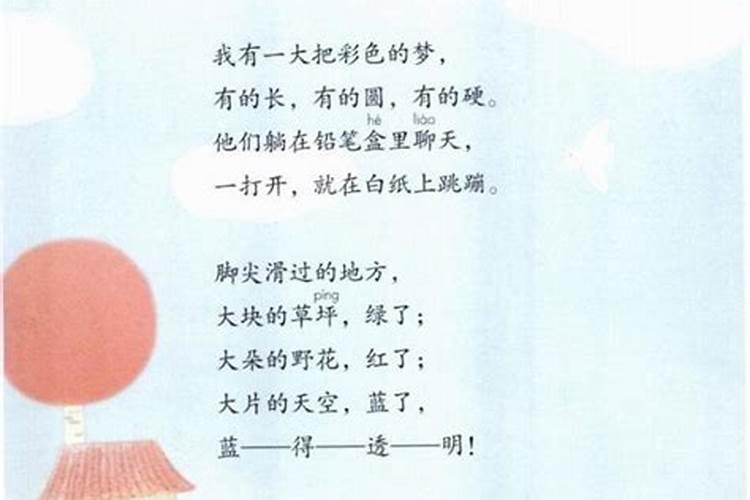 我有一大把彩色的梦，
有的长，有的圆，有的硬。
hé liáo
他们躺在铅笔盒里聊天，
一打开，就在白纸上跳蹦。
脚尖滑过的地方，
píng
大块的草坪，绿了；
大朵的野花，红了；
大片的天空，蓝了，
蓝——得——透——明！